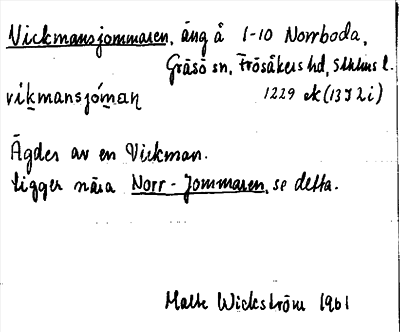 Vickmansjommaren, äng å 1-10 Norrboda,
Gräsö sn, Frösåkers hd, Sthlms l.
vikmansjóman 1229 ek (13J 2i)
Ägdes av en Vickman.
Ligger nära Norr-Jommaren, se detta.
Malte Wickström 1961